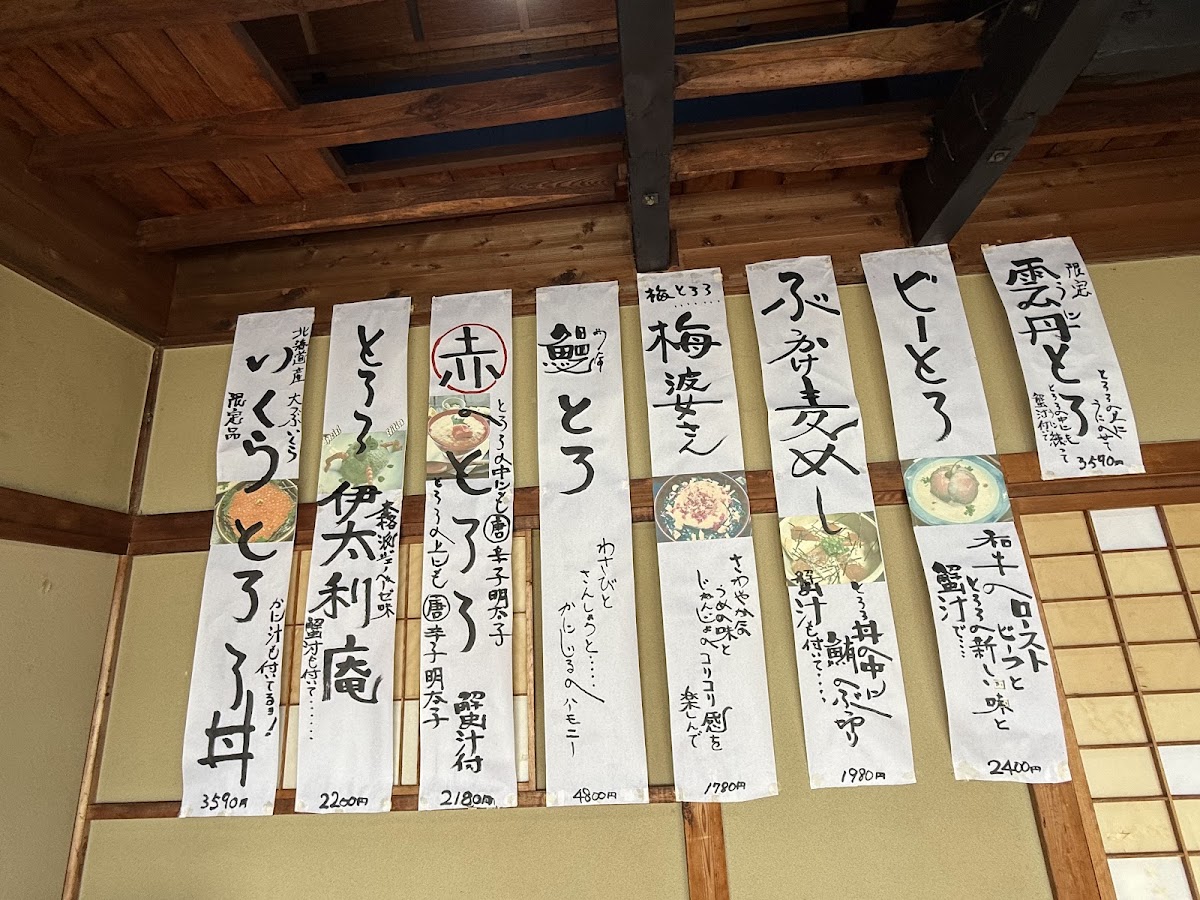 限定
うに
雲丹とろ
とろろの上に
うにのせて
とろろの中にも
蟹汁付いて
3590円
ビーとろ
和牛のロースト
ビーフと
とろろの新しい味と
蟹汁で……
2400円
ぶっかけ麦めし
とろろ丼の中に
鮪のぶつ切り
蟹汁も付いて……
1980円
梅とろろ
梅婆さん
さわやかな
うめの味と
じゃんじょのコリコリ感を
楽しんで
1780円
とろ
わさびと
さんしょうと……
かにじるのハーモニー
4800円
赤のとろろ
とろろの中にも唐辛子明太子
とろろの上にも唐辛子明太子
蟹汁付
2180円
とろろ伊太利庵
蟹汁も付いて……
2200円
北海道産 大つぶいくら
いくらとろろ丼
限定品
かに汁も付いてるョ!
3590円